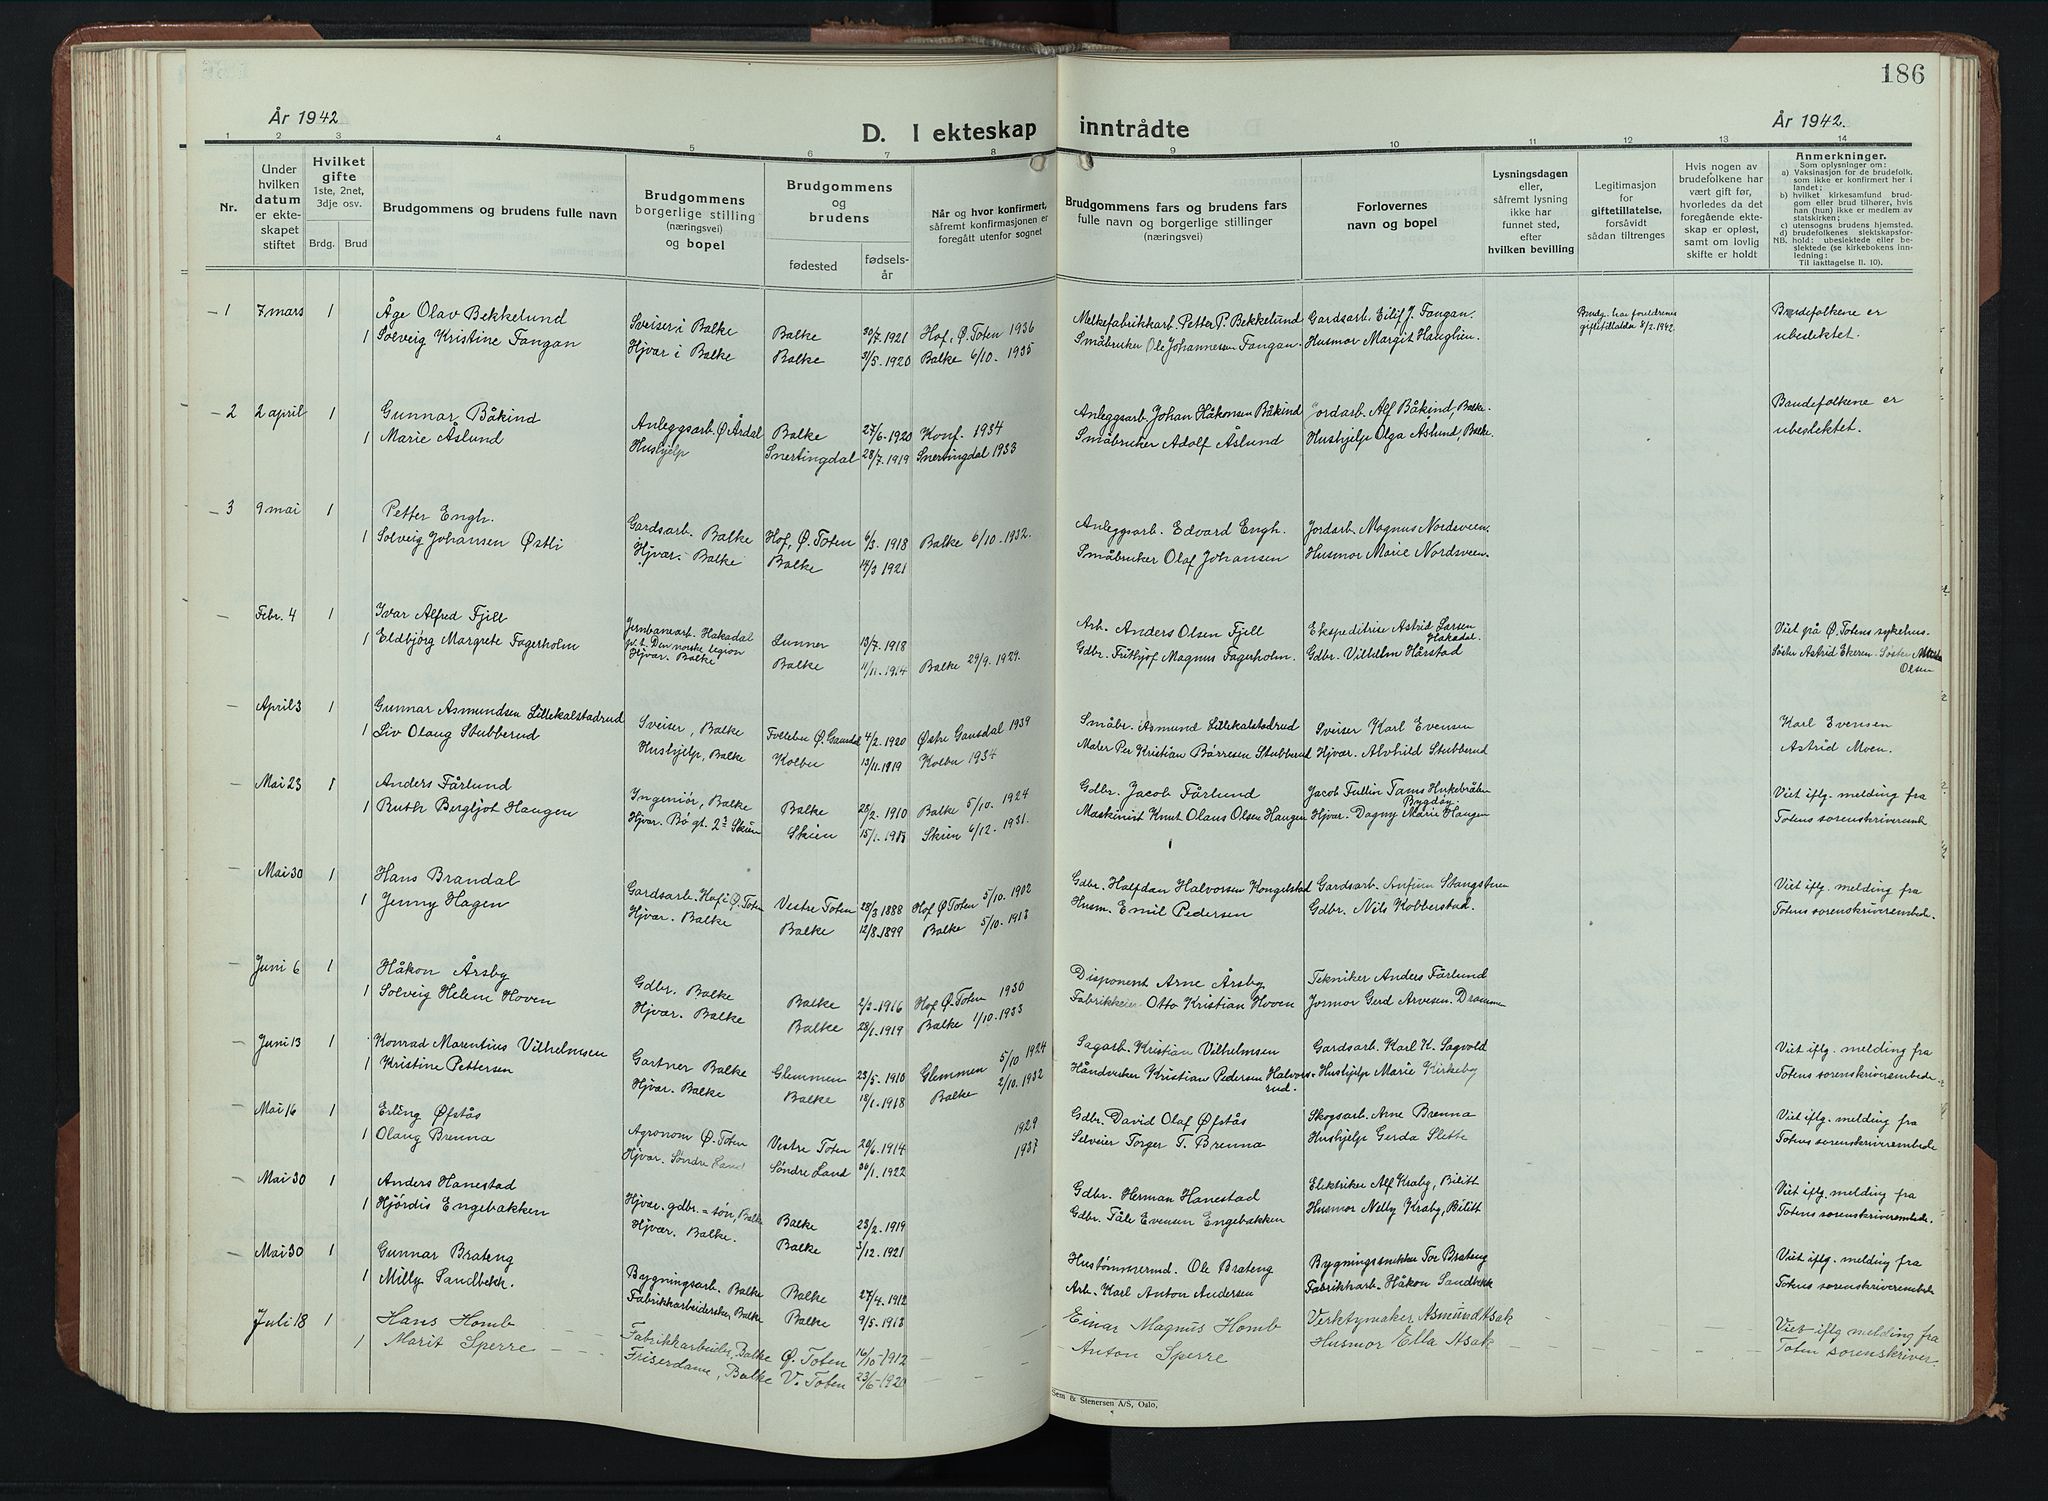 186
År 1942
D. I ekteskap inntrådte
År 1942.
1 2 3 4 5 6 7 8 9 10 11 12 13 14
Nr.
Under hvilken datum er ekteskapet stiftet
Hvilket gifte
1ste, 2net, 3dje osv.
Brdg. Brud
Brudgommens og brudens fulle navn
Brudgommens borgerlige stilling (næringsvei) og bopel
Brudgommens og brudens
fødested fødselsår
Når og hvor konfirmert, såfremt konfirmasjonen er foregått utenfor sognet
Brudgommens fars og brudens fars fulle navn og borgerlige stillinger (næringsvei)
Forlovernes navn og bopel
Lysningsdagen eller, såfremt lysning ikke har funnet sted, efter hvilken bevilling
Legitimasjon for giftetillatelse, forsåvidt sådan tiltrenges
Hvis nogen av brudefolkene har vært gift før, hvorledes da det foregående ekteskap er opløst, samt om lovlig skifte er holdt
Anmerkninger.
Som oplysninger om:
a) Vaksinasjon for de brudefolk, som ikke er konfirmert her i landet;
b) hvilket kirkesamfund brudgom eller brud tilhører, hvis han (hun) ikke er medlem av statskirken;
c) utensogns brudens hjemsted.
d) brudefolkenes slektskapsforhold: ubeslektede eller beslektede (se kirkebokens innledning:
NB.
Til iakttagelse II. 10).
1 7 mars 1 Åge Olav Bekkelund Sveiser i Balke Balke 30/7. 1921 Hof, Ø. Toten 1936 Melkefabrikkarb. Petter P. Bekkelund Gardsarb. Eilif J. Fangan. Brudg. har foreldrenes giftetillatelse 8/2. 1942. Brudefolkene er
1 Solveig Kristine Fangan Hjvar i Balke Balke 31/5. 1920 Balke 6/10. 1935 Småbruker Ole Johannesen Fangan. Husmor Margit Haughen. ubeslektet.
2 2 april 1 Gunnar Båkind Anleggsarb. Ø. Årdal Balke 27/6. 1920 Konf. 1934 Anleggsarb. Johan Håkonsen Båkind Jordarb. Alf Båkind, Balke. Brudefolkene er
1 Marie Åslund Hushjelp Snertingdal 28/7. 1919 Snertingdal 1933 Småbruker Adolf Åslund Hushjelp Olga Åslund, Balke. ubeslektet.
3 9 mai 1 Petter Engh. Gardsarb. Balke Hof, Ø. Toten 6/3. 1918 Balke 6/10. 1932. Anleggsarb. Edvard Engh. Jordarb. Magnus Nordsveen.
1 Solveig Johansen Østli Hjvar. Balke Balke 14/3 1921 Småbruker Olaf Johansen Husmor Marie Nordsveen.
Febr. 4 1 Ivar Alfred Fjell Jernbanearb. Hakadal Lunner 13/7. 1918 Arb. Anders Olsen Fjell Ekspeditrise Astrid Larsen Hakadal. Viet på Ø. Totens sykehus.
1 Eldbjørg Margrete Fagerholm Den norske legion Hjvar. Balke Balke 11/11. 1914 Balke 29/9. 1929. Gdbr. Frithjof Magnus Fagerholm. Gdbr. Vilhelm Hårstad Søster Astrid Ekeren. Søster Olsen
April 3 1 Gunnar Asmundsen Lillekalstadrud Sveiser, Balke Follebu Ø. Gausdal 4/2. 1920 Østre Gausdal 1934 Småbr. Asmund Lillekalstadrud Sveiser Karl Evensen Karl Evensen
1 Liv Olaug Stubberud Hushjelp, Balke Kolbu 13/11. 1919 Kolbu 1934 Maler Per Kristian Børresen Stubberud Hjvar. Alvhild Stubberud Astrid Moen.
Mai 23 1 Anders Fårlund Ingeniør, Balke Balke 28/2. 1910 Balke 5/10. 1924 Gdbr. Jacob Fårlund Jacob Fullin Bygdøy. Viet iflg. melding fra
1 Ruth Bergljot Haugen Hjvar. Bøgt. 2 Skien Skien 15/1. 1913 Skien 6/12. 1931. Maskinist Knut Olaus Olsen Haugen Hjvar. Dagny Marie Haugen Totens sorenskriveremb.
Mai 30 1 Hans Brandal Gardsarb. Hof i Ø. Toten Vestre Toten 28/3 1888 Hof Ø. Toten 5/10. 1902 Gdbr. Halfdan Halvorsen Kongelstad Gardsarb. Anfinn Stangstuen Viet iflg. melding fra
1 Jenny Hagen Hjvar. Balke Balke 12/8. 1899 Balke 5/10. 1913 Husm. Emil Pedersen Gdbr. Nils Kobberstad. Totens sorenskriverembede.
Juni 6 1 Håkon Årsby Gdbr. Balke Balke 2/3. 1916 Hof Ø. Toten 1930 Disponent Arne Årsby Tekniker Anders Fårlund
1 Solveig Helene Hoven Hjvar. Balke Balke 28/1. 1919 Balke 1/10. 1933 Fabrikkeier Otto Kristian Hoven Josmor Gerd Arvesen. Drammen
Juni 13 1 Konrad Marentius Vilhelmsen Gartner Balke Glemmen 23/5. 1910 Glemmen 5/10 1924 Sagarb. Kristian Vilhelmsen Gardsarb. Karl K. Sagvold Viet iflg. melding fra
1 Kristine Pettersen Hjvar. Balke Balke 18/1. 1918 Balke 2/10. 1932 Håndverker Kristian Pedersen Halvorsrud. Hushjelp Marie Kirkeby Totens sorenskriverembede
Mai 16 1 Erling Øfstås Agronom Ø. Toten Vestre Toten 28/6. 1914 1929 Gdbr. David Olaf Øfstås Skogsarb. Arne Brenna Viet iflg. melding fra
1 Olaug Brenna Hjvar. Søndre Land Søndre Land 30/1. 1922 1937 Selveier Torger T. Brenna Hushjelp Gerda Slette Totens sorenskriverembede
Mai 30 1 Anders Hanestad Hjvar. gdbr. = søn, Balke Balke 23/2. 1919 Gdbr. Herman Hanestad Elektriker Alf Kraby, Bilitt Viet iflg. melding fra
1 Hjørdis Engebakken Hjvar. Balke. Balke 3/12. 1921 Gdbr. Tåle Evensen Engebakken Husmor Nelly Kraby, Bilitt Totens sorenskriverembede.
Mai 30 1 Gunnar Brateng Bygningsarb. Balke Balke 27/4. 1912 Hustømmermd. Ole Brateng Bygningssnekker Tor Brateng Viet iflg. melding fra
1 Milly Sandbekk. Fabrikkarbeiderske Balke Balke 9/5. 1913 Arb. Karl Anton Andersen Fabrikkarb. Håkon Sandbekk Totens sorenskriverembede
Juli 18 1 Hans Homb Fabrikkarbeider, Balke Ø. Toten 16/10-1912 Einar Magnus Homb Verktymaker Asmund Asak Viet iflg melding fra
1 Marit Sperre Friserdame, Balke V. Toten 23/6-1920 Anton Sperre Husmor Ella Asak Toten sorenskriver.
Sem & Stenersen A/S, Oslo.